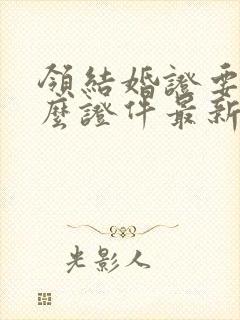 領結婚證要
麼證件最新
光影人